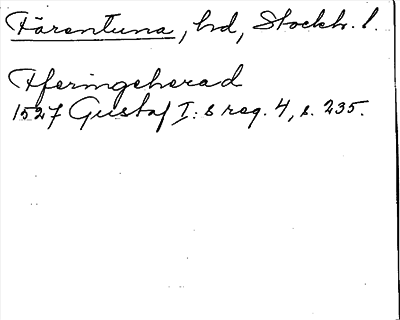 Färentuna, hd, Stockh. l.
Fferingeherad
1527 Gustaf I:s reg. 4, s. 235.